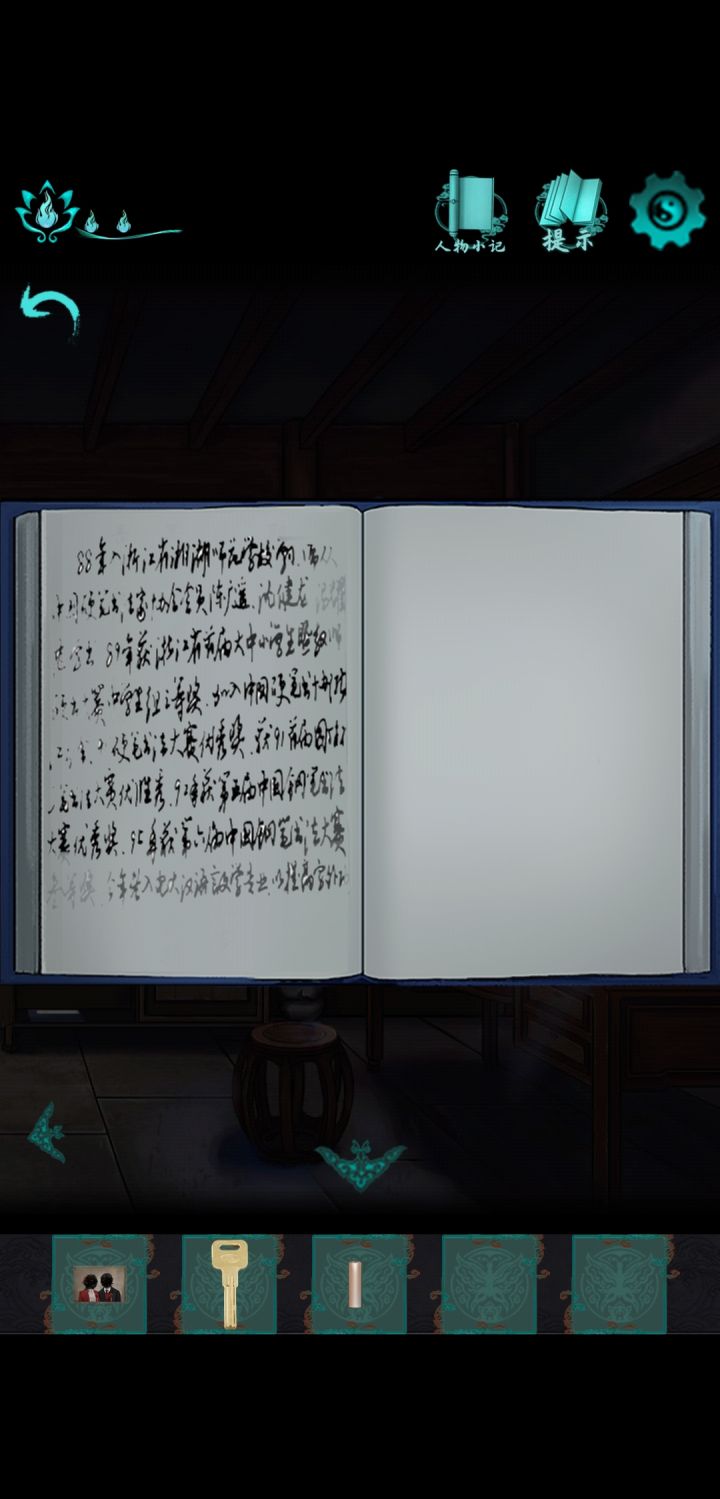 人物小记
提示
88年入浙江省湘湖师范学校
中国硬笔书法家协会会员陈广遥、沈健龙
89年获浙江省首届大中小学生
大赛中学生组三等奖.加入中国硬笔书
硬笔书法大赛优秀奖.获91首届国
笔书法大赛优胜奖.92年获第五届中国钢笔书法
大赛优秀奖.95年获第六届中国钢笔书法大赛
叁等奖.今年考入电大汉语言文学专业.以提高字外